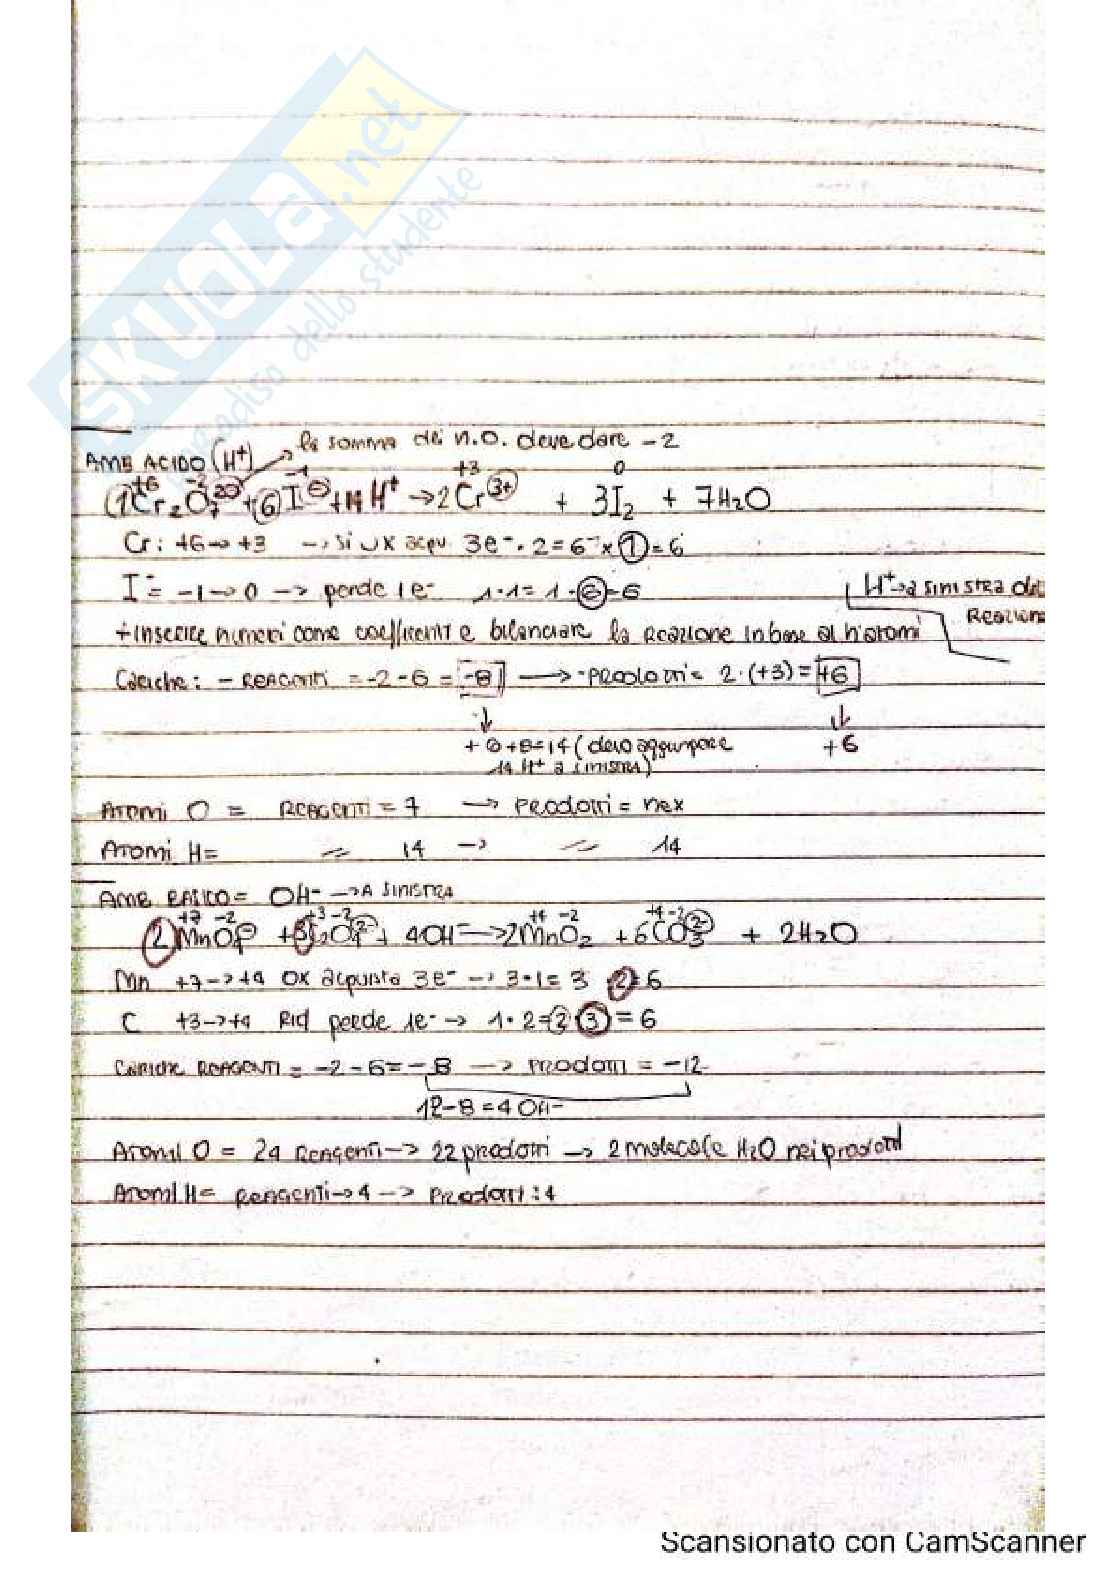 SKUOLA.net
paradiso dello studente
la somma dei n.O. deve dare -2
AMB ACIDO (H⁺)
+6 -2 -1 +3 0
1Cr₂O₇²⁻ + 6I⁻ + 14H⁺ → 2Cr³⁺ + 3I₂ + 7H₂O
Cr: +6 → +3 → si ox acqu. 3e⁻ · 2 = 6 × 1 = 6
I⁻ = -1 → 0 → perde 1e⁻ 1·1 = 1·6 = 6
H⁺ → a sinistra
Reazione
+ inserire numeri come coefficienti e bilanciare la reazione in base al n° atomi
Cariche: - REAGENTI = -2 - 6 = -8 → - PRODOTTI = 2·(+3) = +6
↓ ↓
+6+8=14 (devo aggiungere +6
14 H⁺ a SINISTRA)
ATOMI O = REAGENTI = 7 → PRODOTTI =
ATOMI H = 〃 14 → 〃 14
AMB BASICO = OH⁻ → A SINISTRA
+7 -2 +3 -2 +4 -2 +4 -2
2MnO₄⁻ + 3C₂O₄²⁻ + 4OH⁻ → 2MnO₂ + 6CO₃²⁻ + 2H₂O
Mn +7 → +4 OX acquista 3e⁻ → 3·1 = 3 2 = 6
C +3 → +4 Rid perde 1e⁻ → 1·2 = 2·3 = 6
Cariche REAGENTI = -2 - 6 = -8 → PRODOTTI = -12
12-8 = 4OH⁻
ATOMI O = 24 REAGENTI → 22 prodotti → 2 molecole H₂O nei prodotti
ATOMI H = REAGENTI → 4 → PRODOTTI: 4
Scansionato con CamScanner